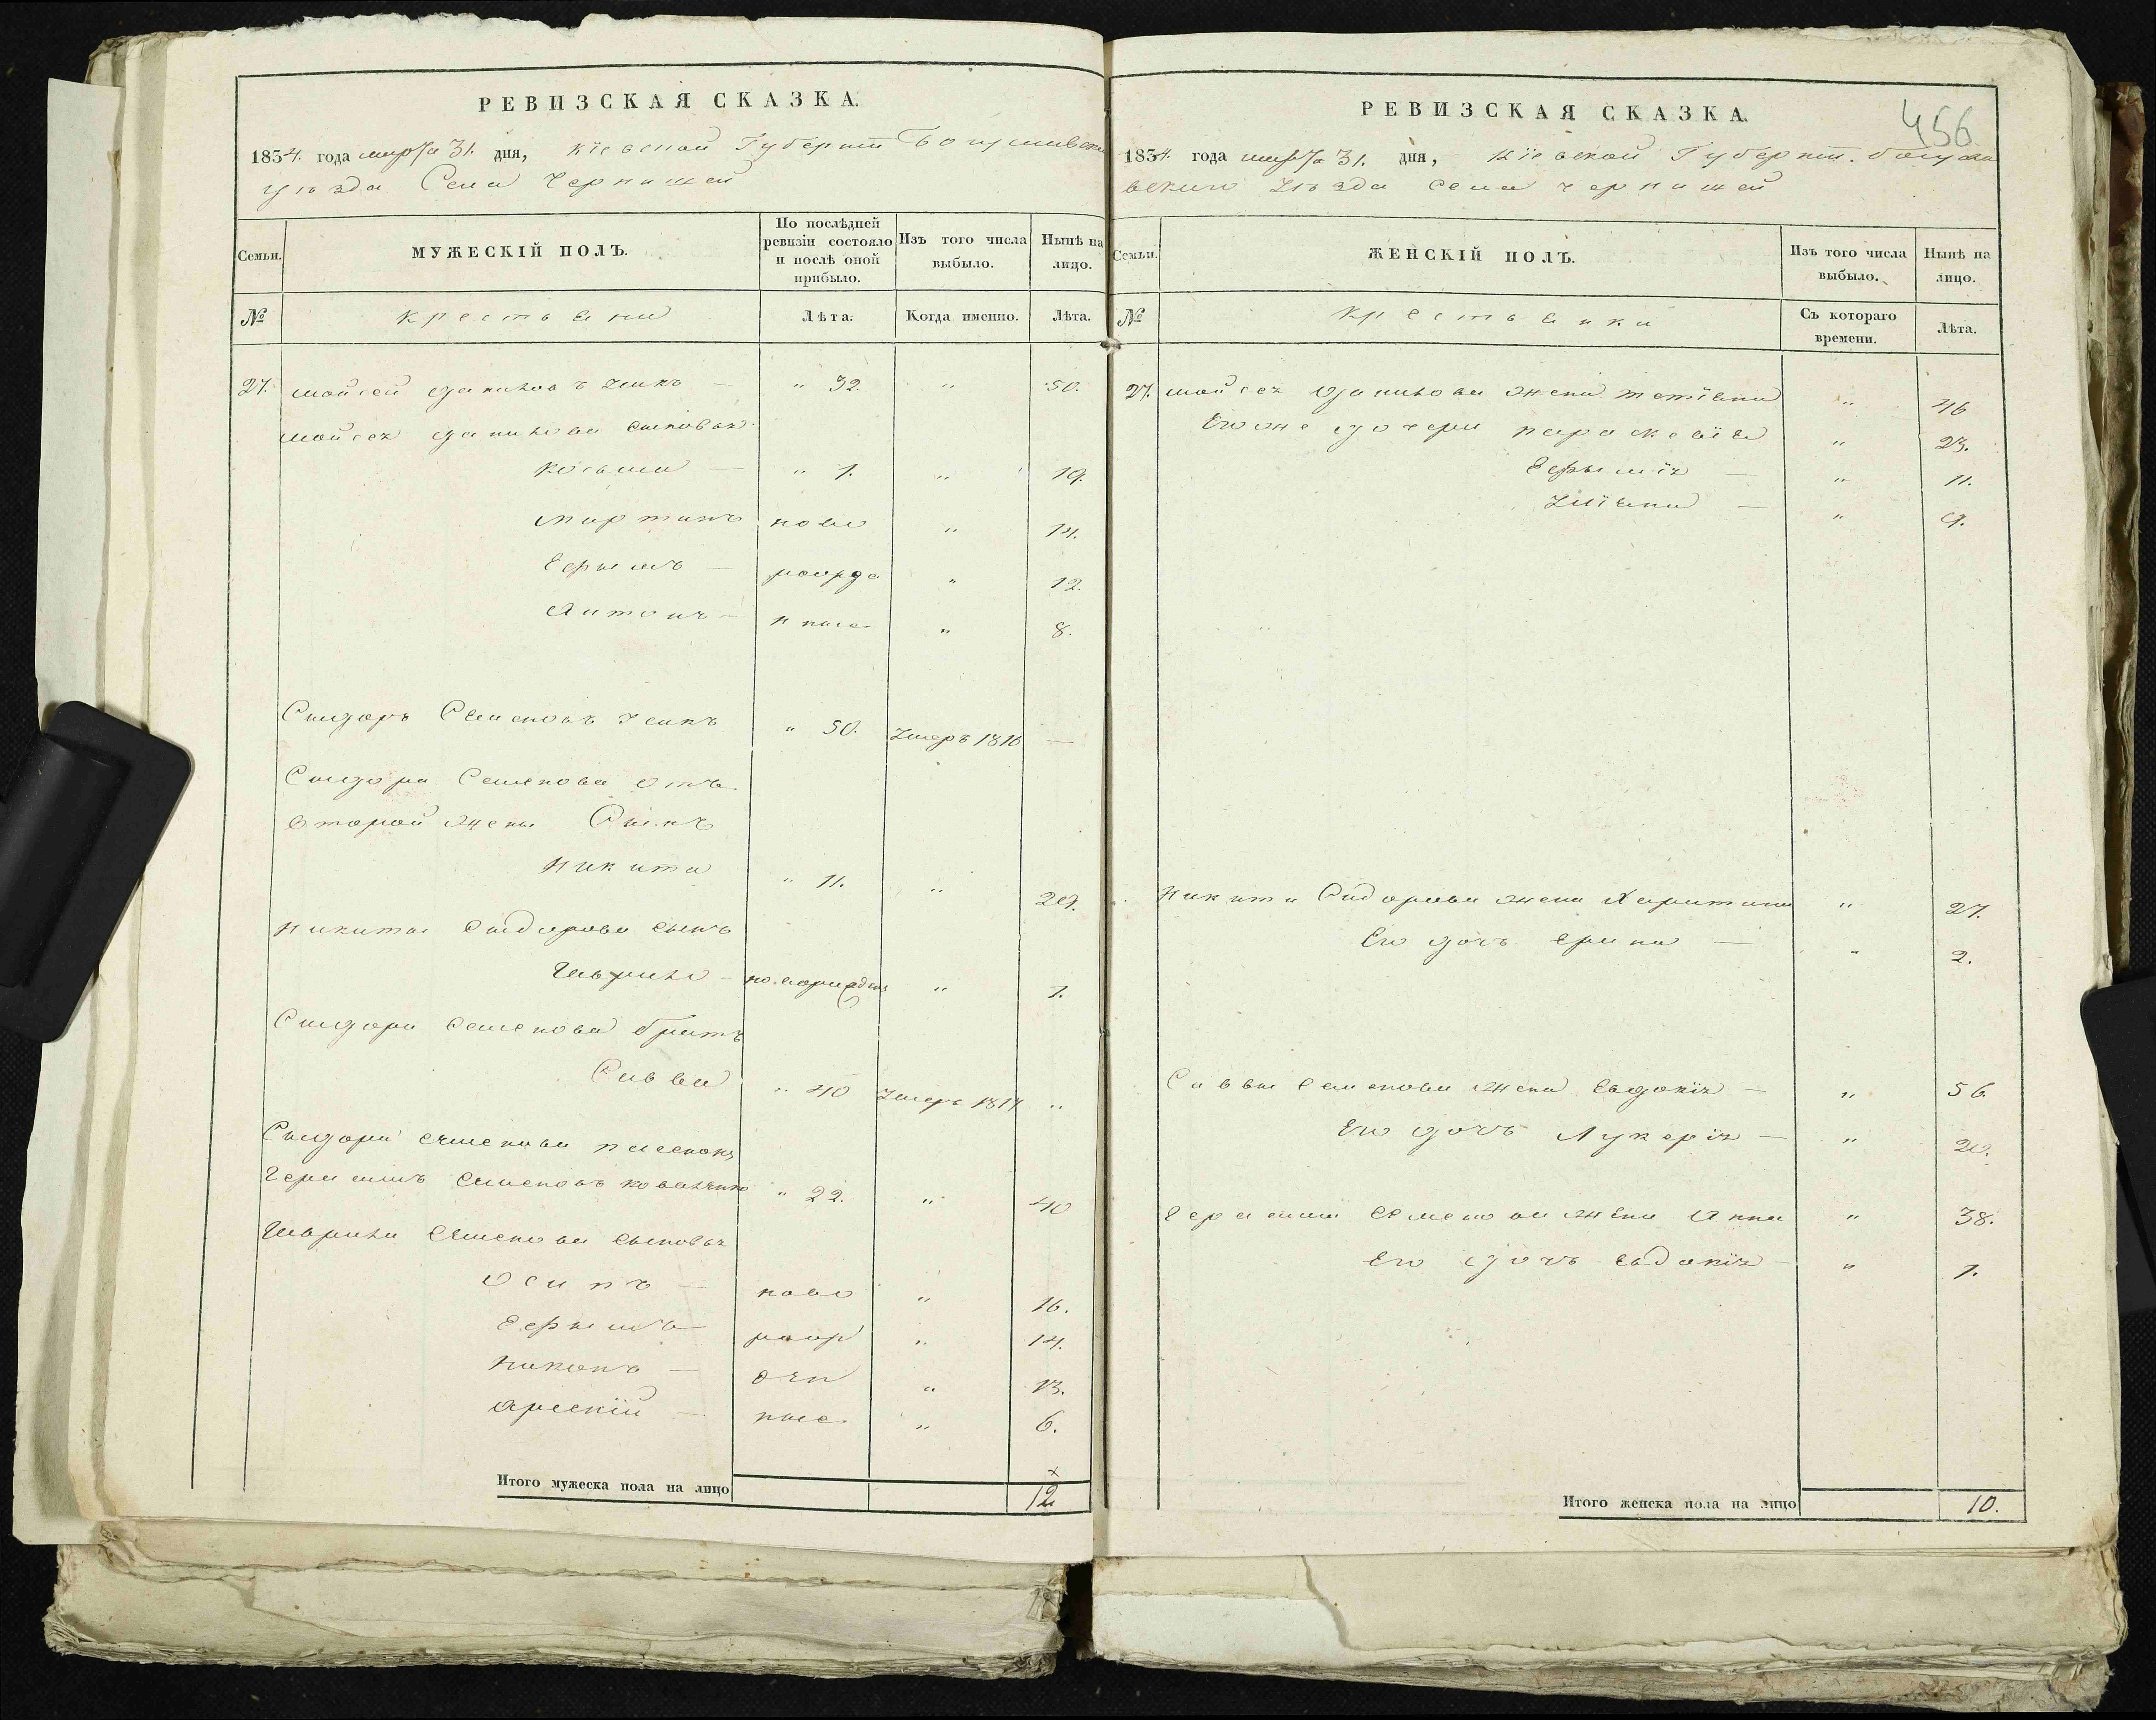 РЕВИЗСКАЯ СКАЗКА.
1834. года марта 31. дня, Кіевской Губерніи Богуславскаго
уѣзда Села
Семьи.
МУЖЕСКІЙ ПОЛЪ.
По послѣдней ревизіи состояло и послѣ оной прибыло.
Изъ того числа выбыло.
Нынѣ на лицо.
№
Крестьяне
Лѣта.
Когда именно.
Лѣта.
27. Мойсей Даниловъ — " 32. " 50.
Мойсея Данилова сыновья
Косьма — " 1. " 19.
Мартинъ ново " 14.
Ефимъ — рожде " 12.
Антонъ — нные " 8.
Сидоръ Семеновъ " 50. Умеръ 1816 —
Сидора Семенова отъ
второй жены Сынъ
Никита " 11. " 29.
Никиты Сидорова сынъ
Гаврило — новорожден " 1.
Сидора Семенова братъ
Савва " 40 Умеръ 181
Сидора Семенова
Герасимъ Семеновъ " 22. " 40
Семенова сыновья
Осипъ — ново " 16.
Ефимъ рож " 14.
Никонъ — ден " 13.
— ные " 6.
х
Итого мужеска пола на лицо 12
456
РЕВИЗСКАЯ СКАЗКА.
1834. года марта 31. дня, Кіевской Губерніи. Богусла
вскаго уѣзда села
Семьи.
ЖЕНСКІЙ ПОЛЪ.
Изъ того числа выбыло.
Нынѣ на лицо.
№
Крестьянки
Съ котораго времени.
Лѣта.
27. Мойсея Данилова жена Тетіяна " 46
Его же дочери Параскевія " 23.
Ефимія — " 11.
Уліяна — " 9.
Никиты Сидорова жена Харитина " 27.
Его дочь Ирина — " 2.
Саввы Семенова жена Евдокія — " 56.
Его дочь Лукерія — " 20.
Герасима Семенова жена Анна " 38.
Его дочь Евдокія — " 1.
Итого женска пола на лицо 10.